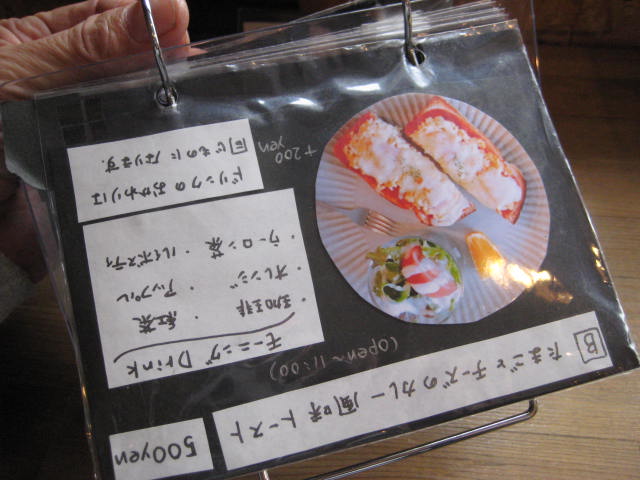 B たまごとチーズのカレー風味トースト
500yen
(open~11:00)
モーニングDrink
・珈琲 ・紅茶
・オレンジ ・アップル
・ウーロン茶 ・ルイボスティ
ドリンクのおかわりは
同じものになります。
+200
yen